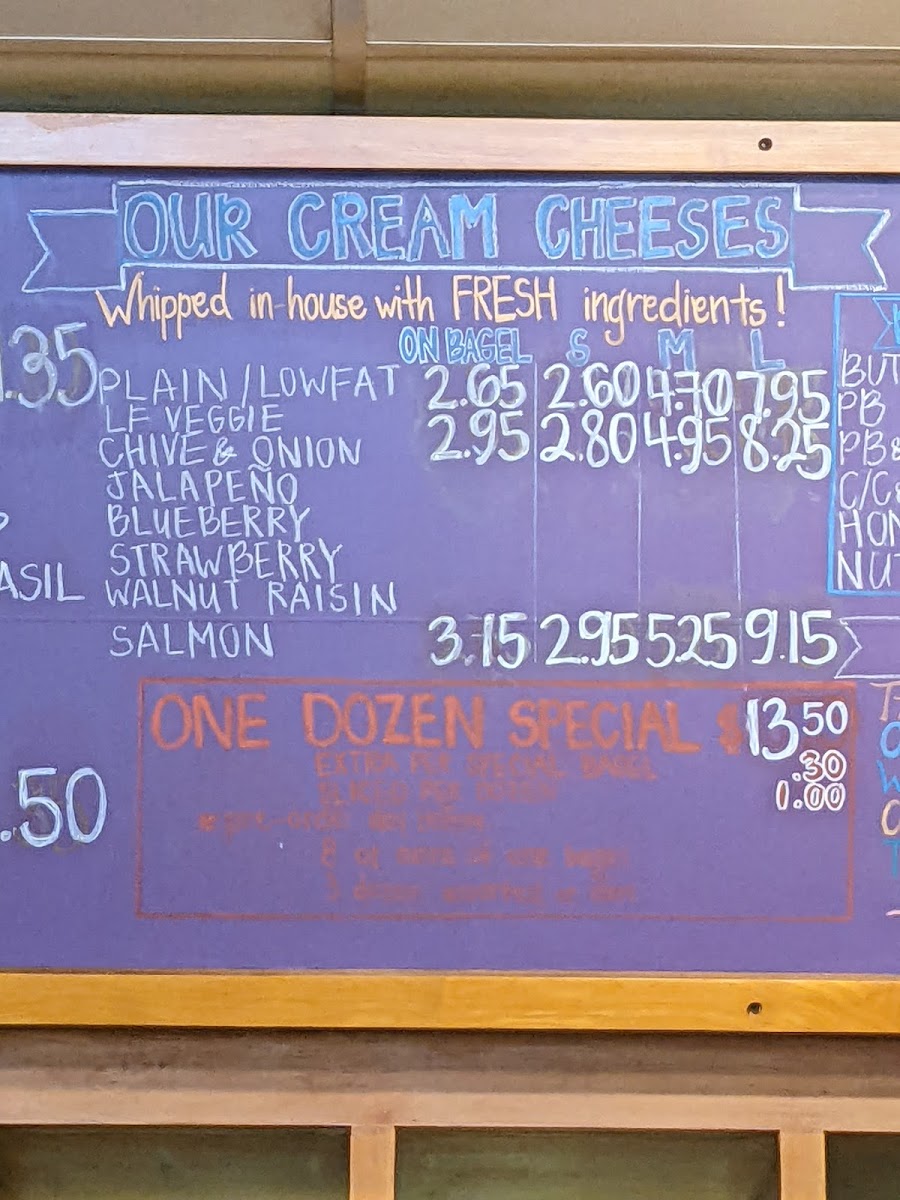 OUR CREAM CHEESES
Whipped in-house with FRESH ingredients!
ON BAGEL S M L
.35 PLAIN/LOWFAT 2.65 2.60 4.70 7.95
LF VEGGIE
CHIVE & ONION 2.95 2.80 4.95 8.25
JALAPEÑO
BLUEBERRY
STRAWBERRY
ASIL WALNUT RAISIN
SALMON 3.15 2.95 5.25 9.15
BUT
PB
PB&
C/C&
HON
NUT
ONE DOZEN SPECIAL $13.50
EXTRA PER SPECIAL BAGEL .30
SLICED PER DOZEN 1.00
8 or more of one bagel
.50